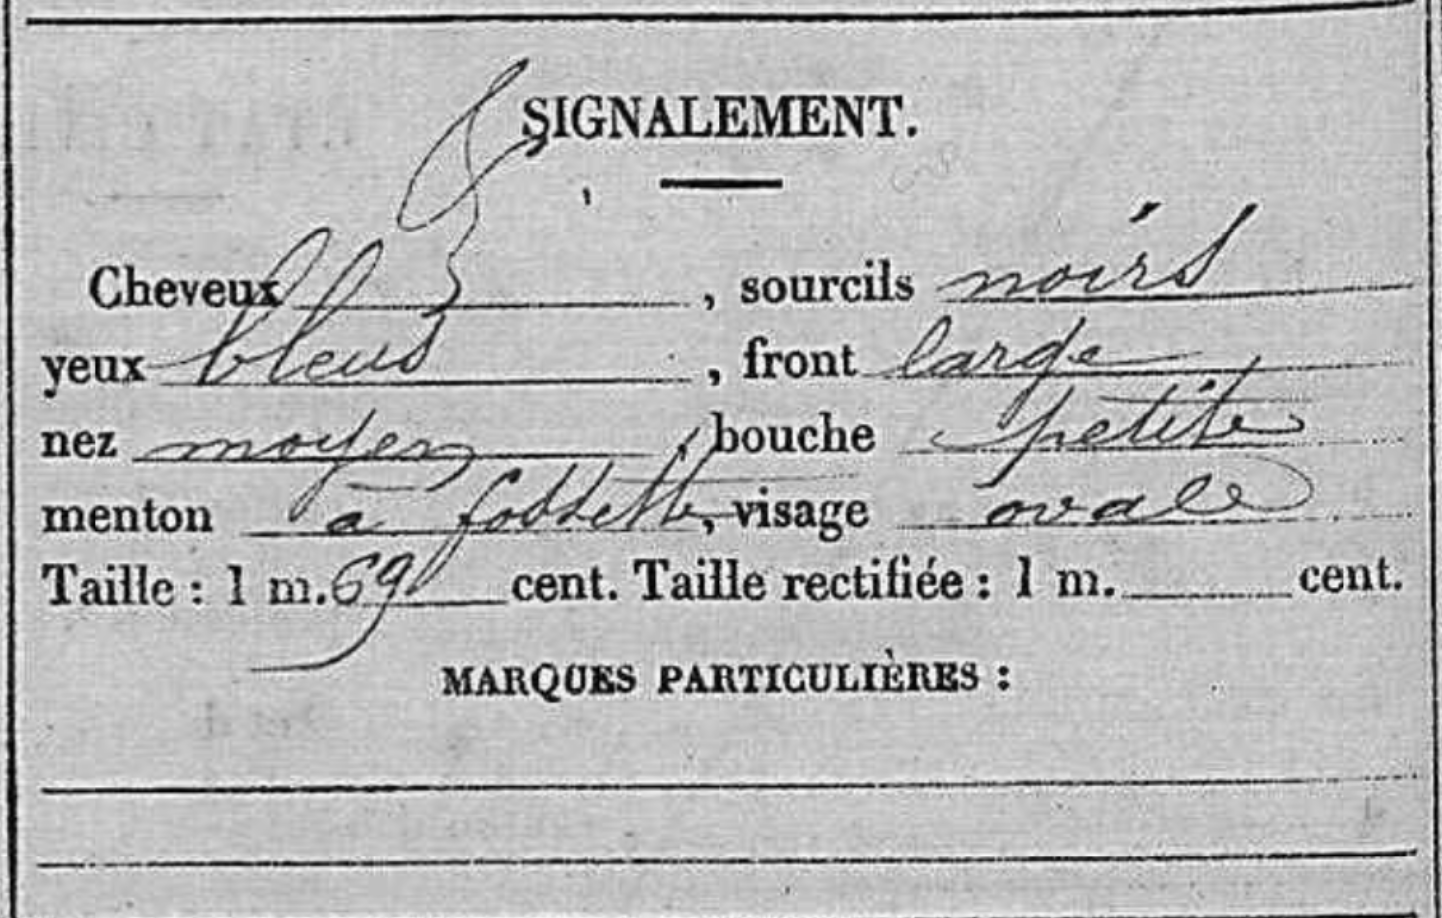 SIGNALEMENT.
Cheveux , sourcils noirs
yeux bleus , front large
nez moyen , bouche petite
menton à fossette, visage ovale
Taille : 1 m. 69 cent. Taille rectifiée : 1 m. cent.
MARQUES PARTICULIÈRES :